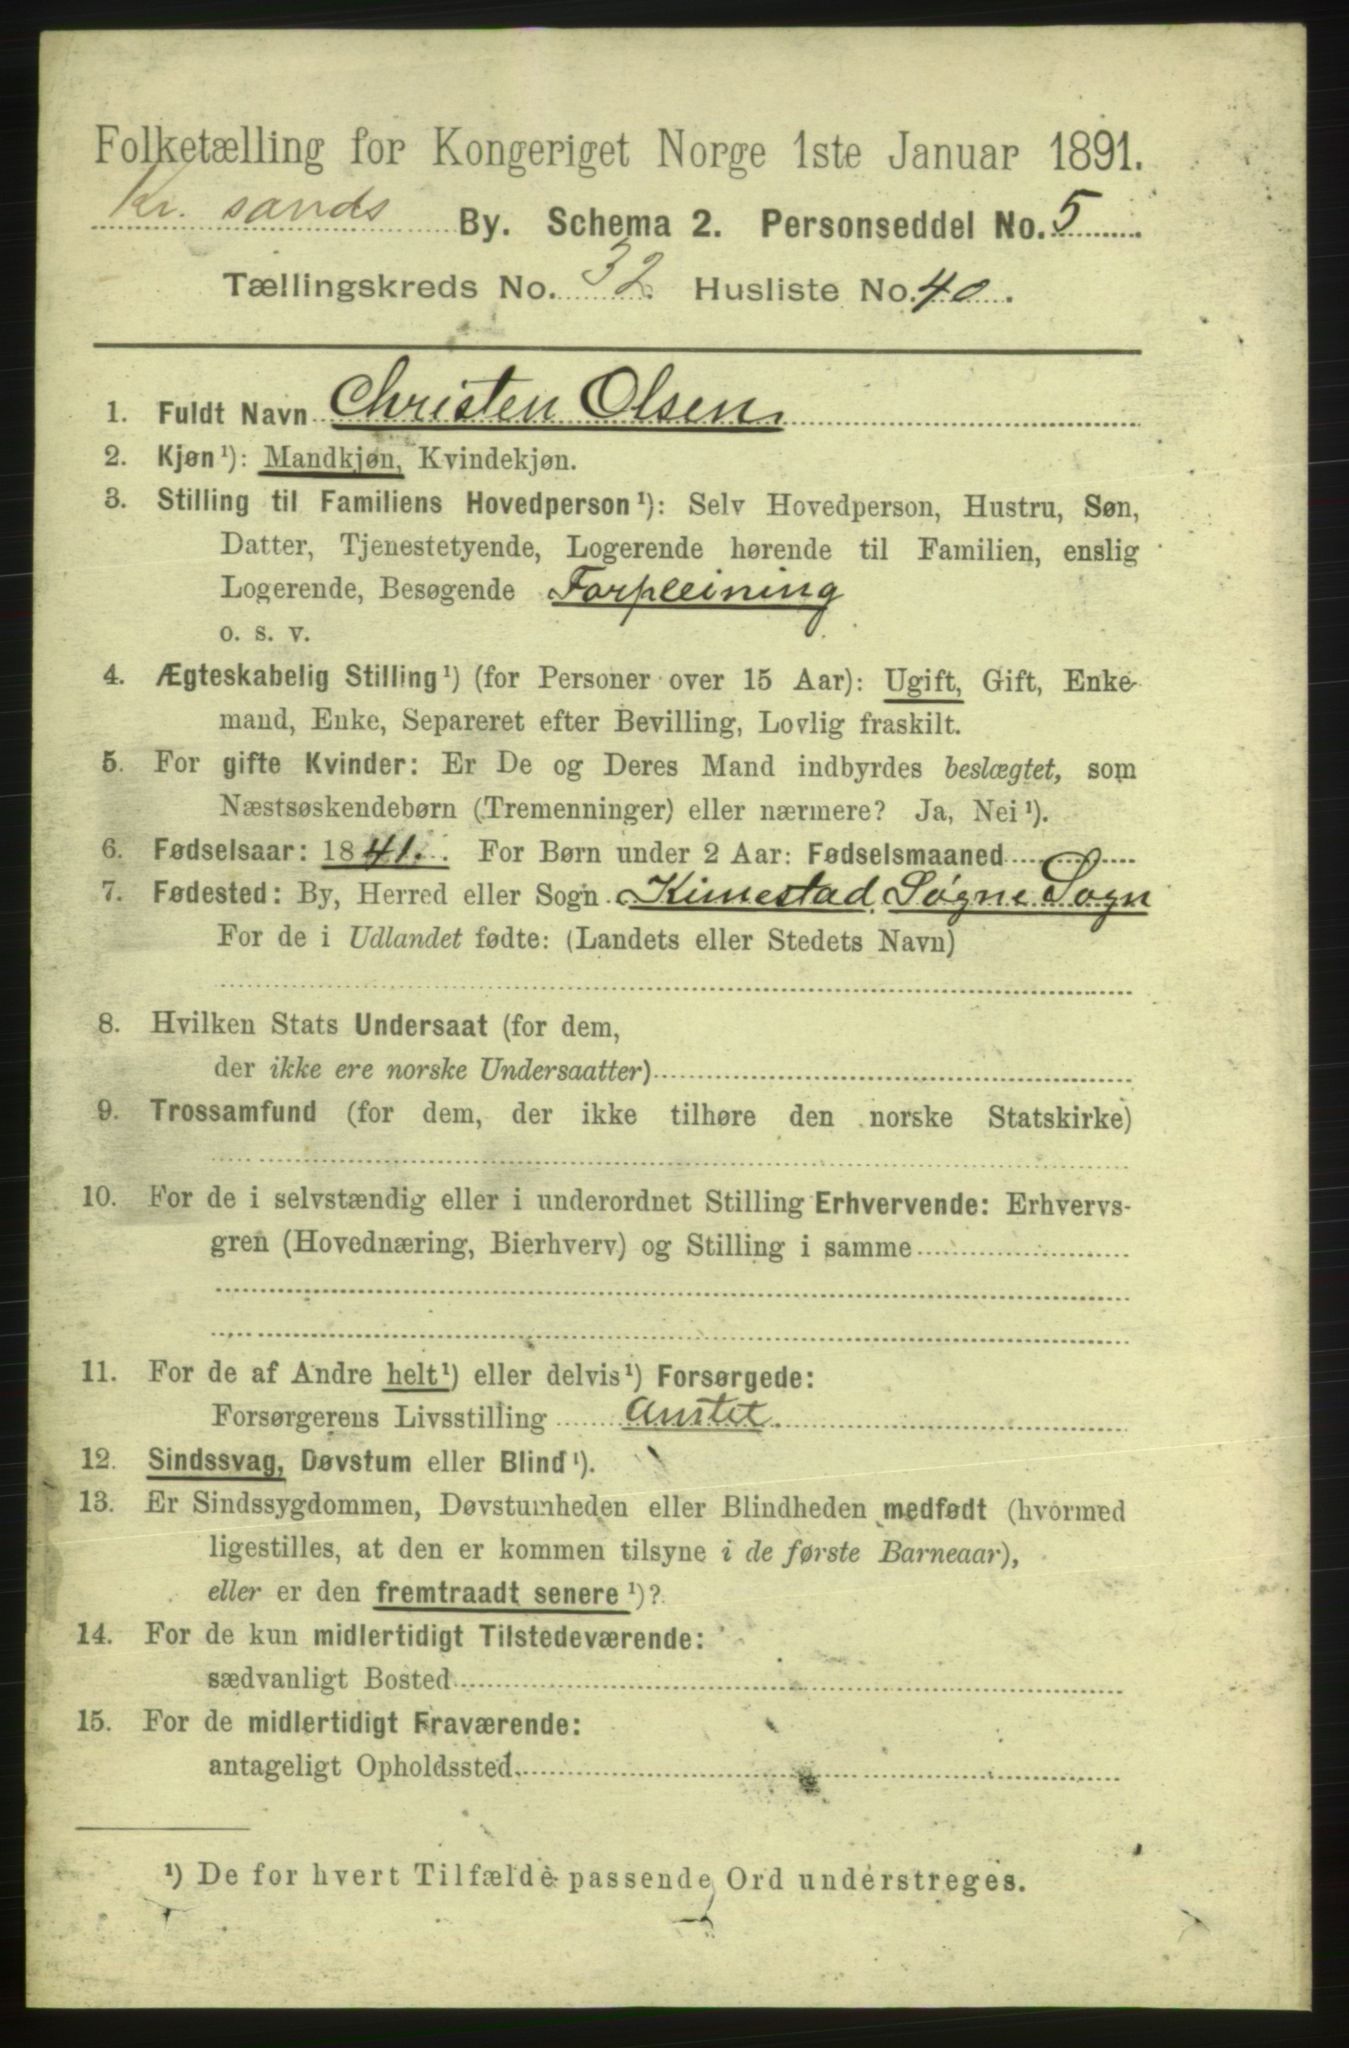 Folketælling for Kongeriget Norge 1ste Januar 1891.
Kr. sands By. Schema 2. Personseddel No. 5
Tællingskreds No. 32 Husliste No. 40.
1. Fuldt Navn Christen Olsen,
2. Kjøn ¹): Mandkjøn, Kvindekjøn.
3. Stilling til Familiens Hovedperson ¹): Selv Hovedperson, Hustru, Søn,
Datter, Tjenestetyende, Logerende hørende til Familien, enslig
Logerende, Besøgende Forpleining
o. s. v.
4. Ægteskabelig Stilling ¹) (for Personer over 15 Aar): Ugift, Gift, Enke-
mand, Enke, Separeret efter Bevilling, Lovlig fraskilt.
5. For gifte Kvinder: Er De og Deres Mand indbyrdes beslægtet, som
Næstsøskendebørn (Tremenninger) eller nærmere? Ja, Nei ¹).
6. Fødselsaar: 1841. For Børn under 2 Aar: Fødselsmaaned
7. Fødested: By, Herred eller Sogn Kimestad, Søgne Sogn
For de i Udlandet fødte: (Landets eller Stedets Navn)
8. Hvilken Stats Undersaat (for dem,
der ikke ere norske Undersaatter)
9. Trossamfund (for dem, der ikke tilhøre den norske Statskirke)
10. For de i selvstændig eller i underordnet Stilling Erhvervende: Erhvervs-
gren (Hovednæring, Bierhverv) og Stilling i samme
11. For de af Andre helt ¹) eller delvis ¹) Forsørgede:
Forsørgerens Livsstilling Amtet.
12. Sindssvag, Døvstum eller Blind ¹).
13. Er Sindssygdommen, Døvstumheden eller Blindheden medfødt (hvormed
ligestilles, at den er kommen tilsyne i de første Barneaar),
eller er den fremtraadt senere ¹)?
14. For de kun midlertidigt Tilstedeværende:
sædvanligt Bosted
15. For de midlertidigt Fraværende:
antageligt Opholdssted
¹) De for hvert Tilfælde passende Ord understreges.